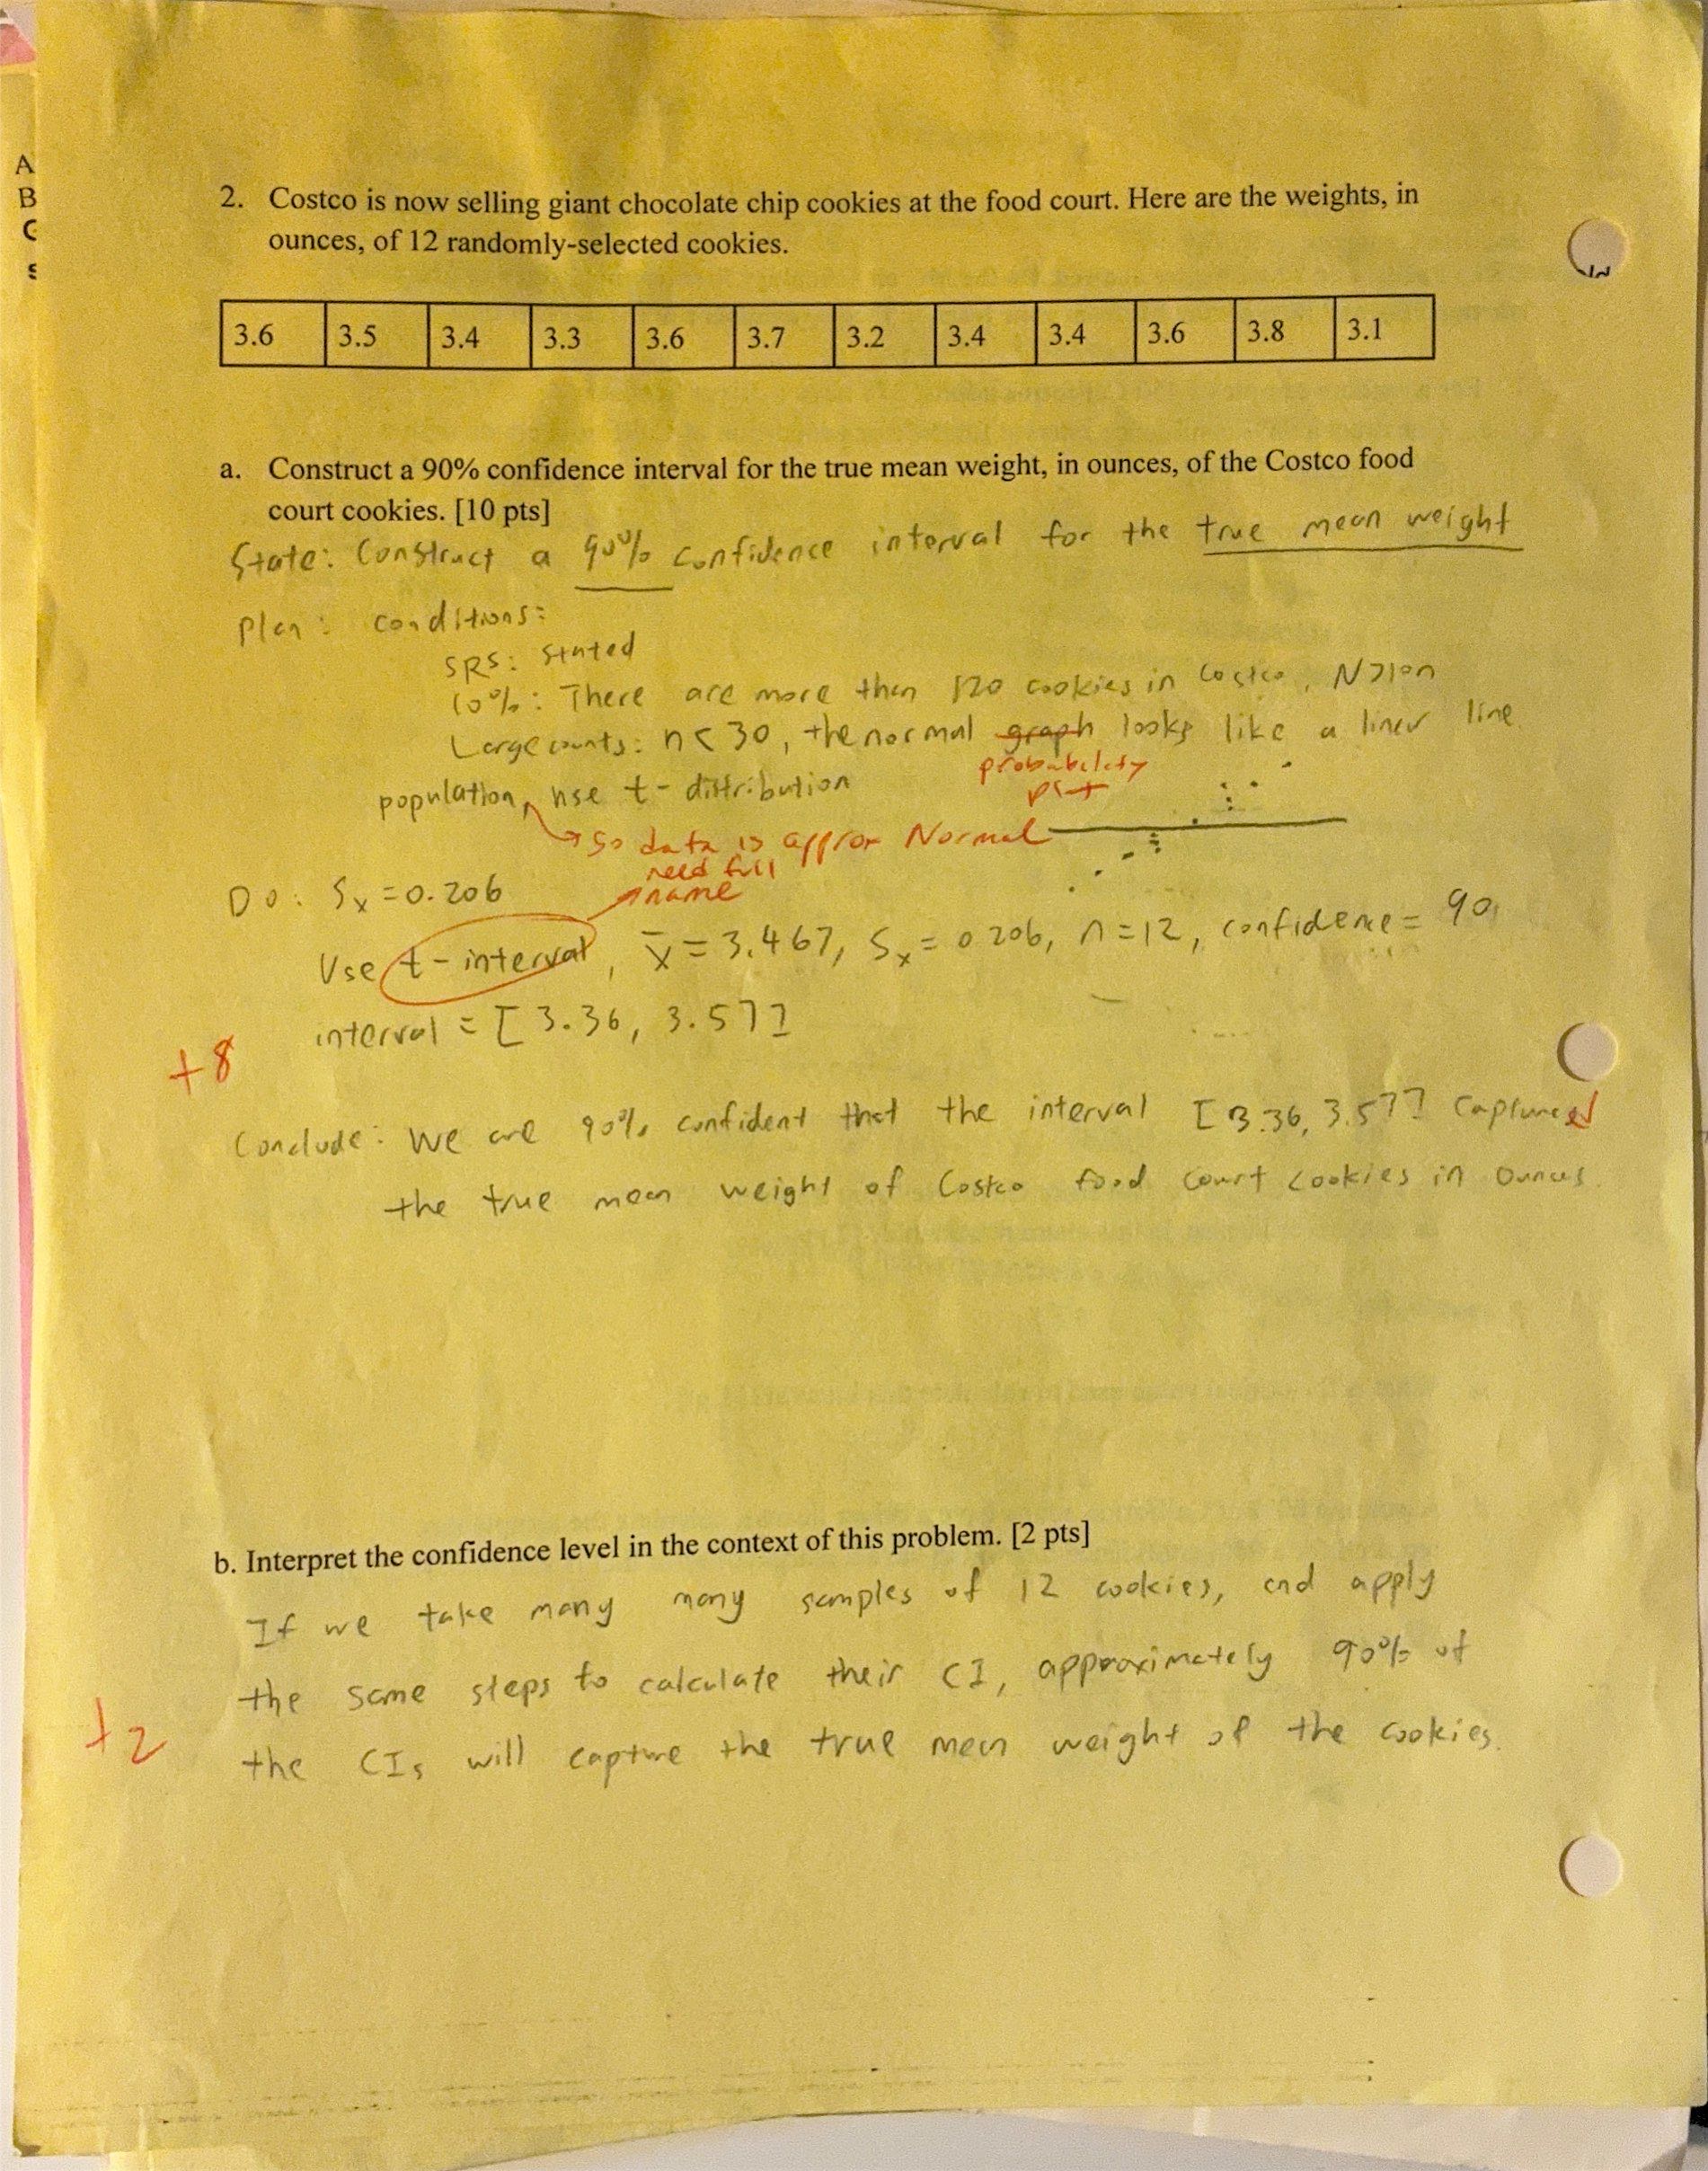 A
B
C
S
2. Costco is now selling giant chocolate chip cookies at the food court. Here are the weights, in
ounces, of 12 randomly-selected cookies.
3.6 3.5 3.4 3.3 3.6 3.7 3.2 3.4 3.4 3.6 3.8 3.1
a. Construct a 90% confidence interval for the true mean weight, in ounces, of the Costco food
court cookies. [10 pts]
State: Construct a 90% confidence interval for the true mean weight
Plan: conditions:
SRS: Stated
10%: There are more than 120 cookies in Costco, N>10n
Large counts: n<30, the normal graph looks like a liner line
probability
plot
population, use t-distribution
so data is approx Normal
need full
name
Do: Sx=0.206
Use t-interval, x̄=3.467, Sx=0.206, n=12, confidence=90
interval = [3.36, 3.57]
+8
Conclude: We are 90% confident that the interval [3.36, 3.57] captured
the true mean weight of Costco food court cookies in ounces.
b. Interpret the confidence level in the context of this problem. [2 pts]
If we take many many samples of 12 cookies, and apply
the same steps to calculate their CI, approximately 90% of
+2
the CIs will capture the true mean weight of the cookies.